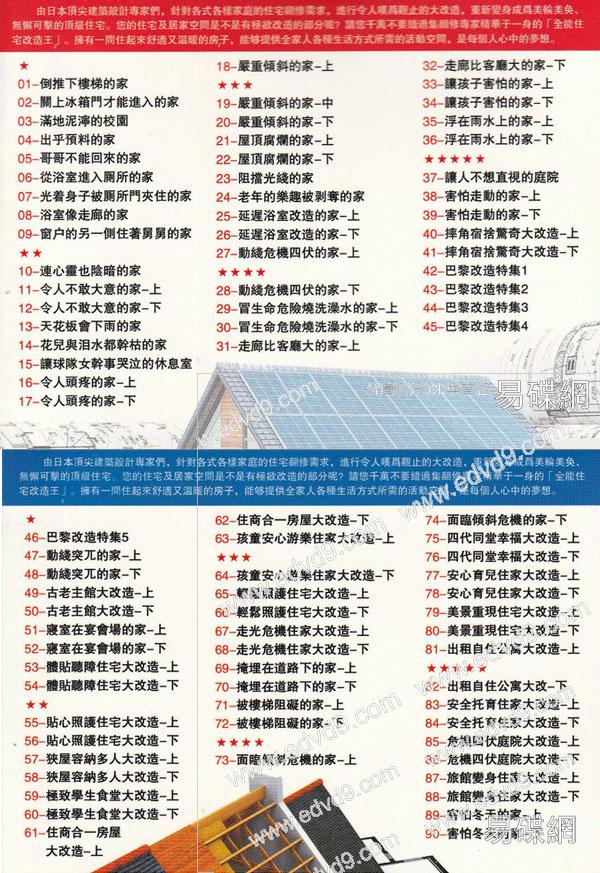 由日本頂尖建築設計專家們，針對各式各樣家庭的住宅翻修需求，進行令人嘆爲觀止的大改造，重新變身成爲美輪美奂、
無懈可擊的頂級住宅。您的住宅及居家空間是不是有極欲改造的部分呢？請您千萬不要錯過集翻修專家精華于一身的「全能
住宅改造王」。擁有一間住起來舒適又温暖的房子，能够提供全家人各種生活方式所需的活動空間，是每個人心中的夢想。
★
01-倒推下樓梯的家
02-關上冰箱門才能進入的家
03-滿地泥濘的校園
04-出乎預料的家
05-哥哥不能回來的家
06-從浴室進入厠所的家
07-光着身子被厠所門夾住的家
08-浴室像走廊的家
09-窗户的另一側住著舅舅的家
★★
10-連心靈也陰暗的家
11-令人不敢大意的家-上
12-令人不敢大意的家-下
13-天花板會下雨的家
14-花兒與泪水都幹枯的家
15-讓球隊女幹事哭泣的休息室
16-令人頭疼的家-上
17-令人頭疼的家-下
18-嚴重傾斜的家-上
★★★
19-嚴重傾斜的家-中
20-嚴重傾斜的家-下
21-屋頂腐爛的家-上
22-屋頂腐爛的家-下
23-阻擋光綫的家
24-老年的樂趣被剥奪的家
25-延遲浴室改造的家-上
26-延遲浴室改造的家-下
27-動綫危機四伏的家-上
★★★★
28-動綫危機四伏的家-下
29-冒生命危險燒洗澡水的家-上
30-冒生命危險燒洗澡水的家-下
31-走廊比客廳大的家-上
32-走廊比客廳大的家-下
33-讓孩子害怕的家-上
34-讓孩子害怕的家-下
35-浮在雨水上的家-上
36-浮在雨水上的家-下
★★★★★
37-讓人不想直視的庭院
38-害怕走動的家-上
39-害怕走動的家-下
40-摔角宿捨驚奇大改造-上
41-摔角宿捨驚奇大改造-下
42-巴黎改造特集1
43-巴黎改造特集2
44-巴黎改造特集3
45-巴黎改造特集4
易碟網
www.edvd9.com
由日本頂尖建築設計專家們，針對各式各樣家庭的住宅翻修需求，進行令人嘆爲觀止的大改造，重新變身成爲美輪美奂、
無懈可擊的頂級住宅。您的住宅及居家空間是不是有極欲改造的部分呢？請您千萬不要錯過集翻修專家精華于一身的「全能住
宅改造王」。擁有一間住起來舒適又温暖的房子，能够提供全家人各種生活方式所需的活動空間，是每個人心中的夢想。
★
46-巴黎改造特集5
47-動綫突兀的家-上
48-動綫突兀的家-下
49-古老主館大改造-上
50-古老主館大改造-下
51-寢室在宴會場的家-上
52-寢室在宴會場的家-下
53-體貼聽障住宅大改造-上
54-體貼聽障住宅大改造-下
★★
55-貼心照護住宅大改造-上
56-貼心照護住宅大改造-下
57-狹屋容納多人大改造-上
58-狹屋容納多人大改造-下
59-極致學生食堂大改造-上
60-極致學生食堂大改造-下
61-住商合一房屋
大改造-上
62-住商合一房屋大改造-下
63-孩童安心游樂住家大改造-上
★★★
64-孩童安心游樂住家大改造-下
65-輕鬆照護住宅大改造-上
66-輕鬆照護住宅大改造-下
67-走光危機住家大改造-上
68-走光危機住家大改造-下
69-掩埋在道路下的家-上
70-掩埋在道路下的家-下
71-被樓梯阻礙的家-上
72-被樓梯阻礙的家-下
★★★★
73-面臨傾斜危機的家-上
74-面臨傾斜危機的家-下
75-四代同堂幸福大改造-上
76-四代同堂幸福大改造-下
77-安心育兒住家大改造-上
78-安心育兒住家大改造-下
79-美景重現住宅大改造-上
80-美景重現住宅大改造-下
81-出租自住公寓大改造-上
★★★★★
82-出租自住公寓大改-下
83-安全托育住家大改造-上
84-安全托育住家大改造-下
85-危機四伏庭院大改造-上
86-危機四伏庭院大改造-下
87-旅館變身住家大改造-上
88-旅館變身住家大改造-下
89-害怕冬天的家-上
90-害怕冬天的家-下
易碟網
www.edvd9.com